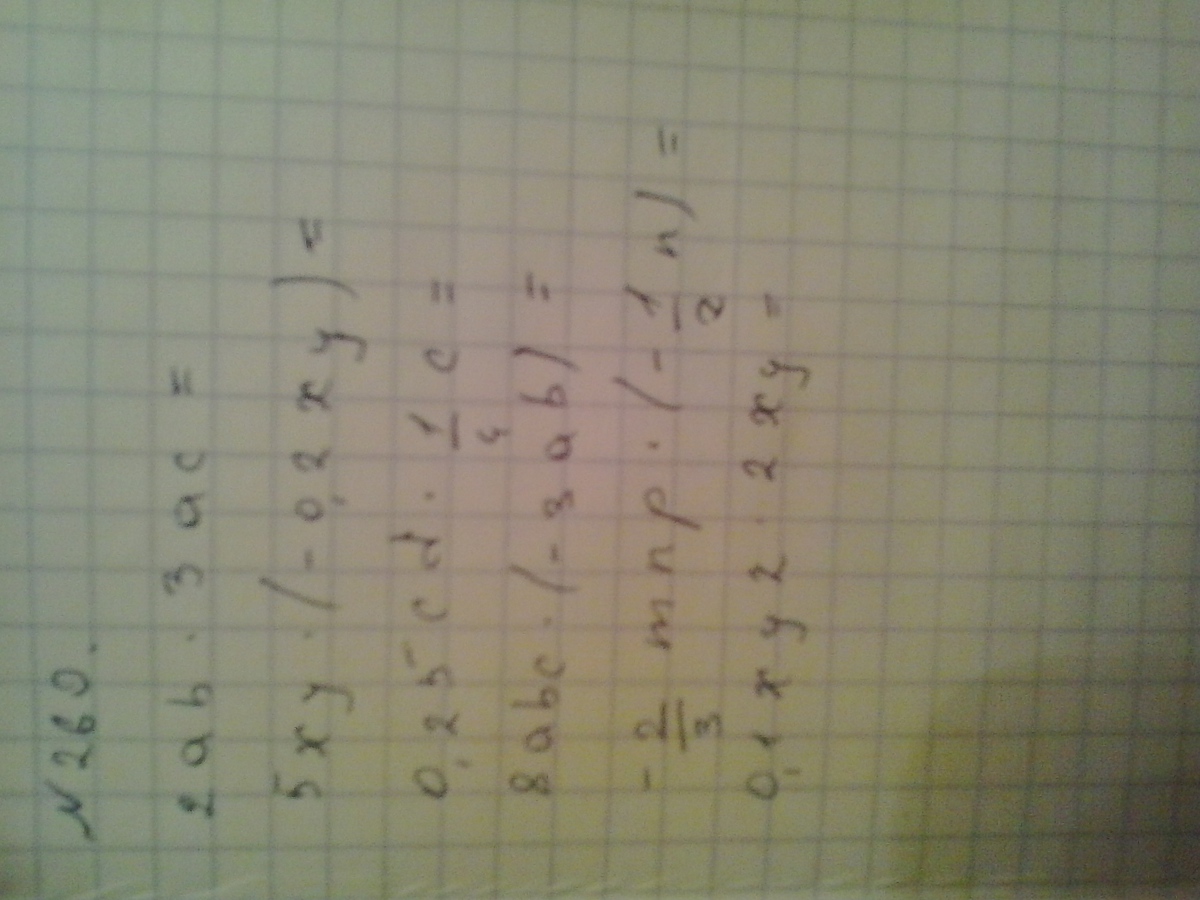 № 260.
2ab · 3ac =
5xy · (-0,2xy) =
0,25cd · 1/4 c =
8abc · (-3ab) =
-2/3 mnp · (-1/2 n) =
0,1xy2 · 2xy =